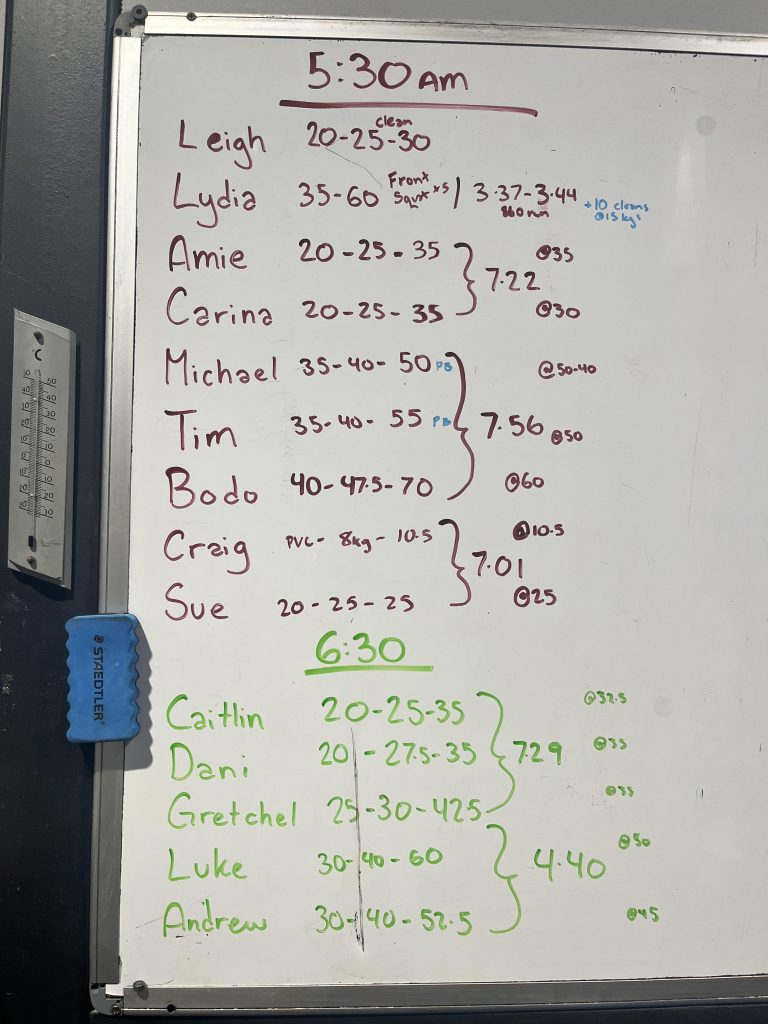 5:30 am
Leigh 20-25-30 clean
Lydia 35-60 Front Squat x5 | 3.37-3.44 860 run +10 cleans @15kgs
Amie 20-25-35 @35
7.22
Carina 20-25-35 @30
Michael 35-40-50 PB @50-40
Tim 35-40-55 PB 7.56 @50
Bodo 40-47.5-70 @60
Craig PVC-8kg-10.5 @10.5
7.01
Sue 20-25-25 @25
STAEDTLER
6:30
Caitlin 20-25-35 @32.5
Dani 20-27.5-35 7.29 @35
Gretchel 25-30-42.5 @35
Luke 30-40-60 4.40 @50
Andrew 30-40-52.5 @45
°C